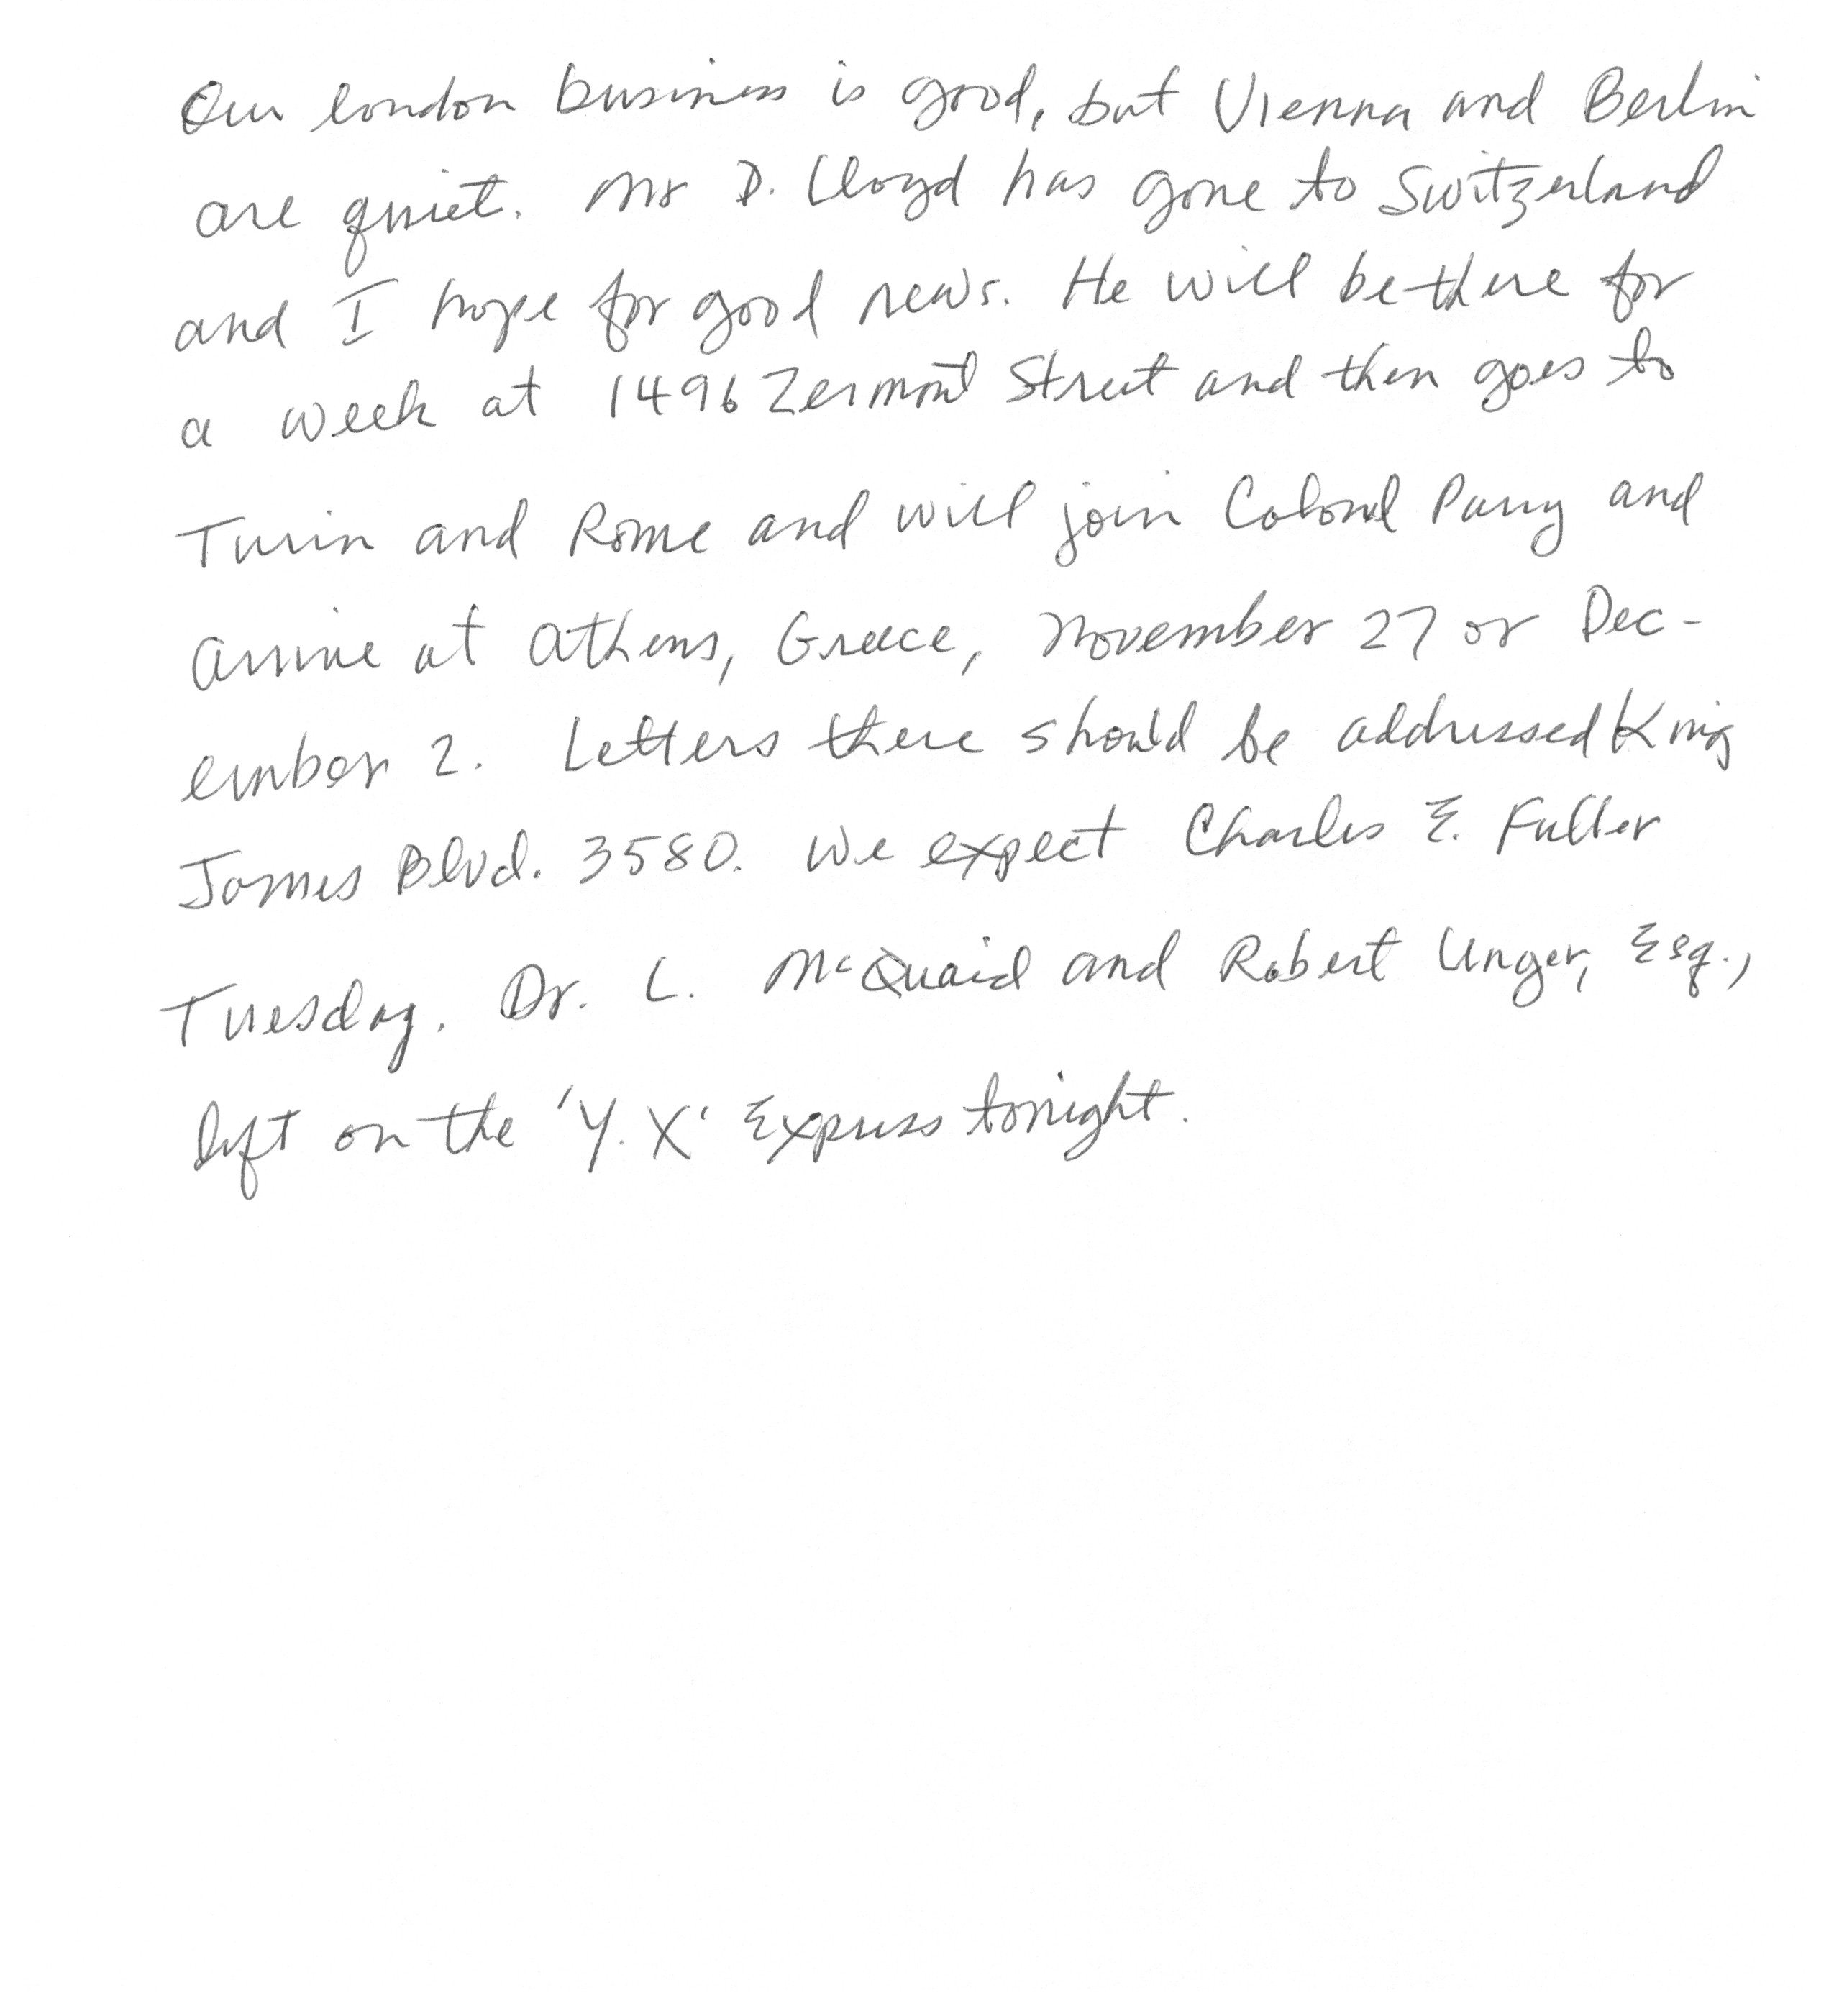 Our london business is good, but Vienna and Berlin
are quiet. Mr D. Lloyd has gone to Switzerland
and I hope for good news. He will be there for
a week at 1496 Zermont Street and then goes to
Turin and Rome and will join Colonel Parry and
arrive at Athens, Greece, November 27 or Dec-
ember 2. Letters there should be addressed King
James Blvd. 3580. We expect Charles E. Fuller
Tuesday. Dr. L. McQuaid and Robert Unger, Esq.,
left on the 'Y.X' Express tonight.